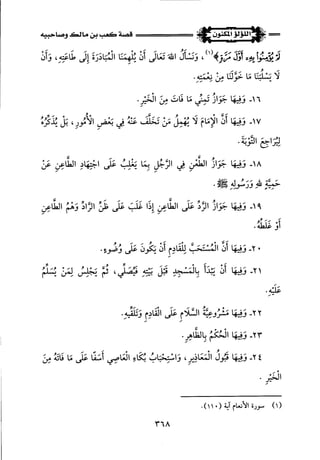 اللؤلؤ المكنون
قصة كعب بن مالك وصاحبيه
لَمْ يُؤْمِنُوا بِهِ أَوَّلَ مَرَّةٍ﴾(١)، وَنَسْأَلُ اللهَ تَعَالَى أَنْ يُلْهِمَنَا الْمُبَادَرَةَ إِلَى طَاعَتِهِ، وَأَنْ
لَا يَسْلُبَنَا مَا خَوَّلَنَا مِنْ نِعْمَتِهِ.
١٦- وَفِيهَا جَوَازُ تَمَنِّي مَا فَاتَ مِنَ الْخَيْرِ.
١٧- وَفِيهَا أَنَّ الْإِمَامَ لَا يُهْمِلُ مَنْ تَخَلَّفَ عَنْهُ فِي بَعْضِ الْأُمُورِ، بَلْ يُذَكِّرُهُ
لِيُرَاجِعَ التَّوْبَةَ.
١٨- وَفِيهَا جَوَازُ الطَّعْنِ فِي الرَّجُلِ بِمَا يَغْلِبُ عَلَى اجْتِهَادِ الطَّاعِنِ عَنْ
حَمِيَّةٍ لِلهِ وَرَسُولِهِ ﷺ.
١٩- وَفِيهَا جَوَازُ الرَّدِّ عَلَى الطَّاعِنِ إِذَا غَلَبَ عَلَى ظَنِّ الرَّادِّ وَهْمُ الطَّاعِنِ
أَوْ غَلَطُهُ.
٢٠- وَفِيهَا أَنَّ الْمُسْتَحَبَّ لِلْقَادِمِ أَنْ يَكُونَ عَلَى وُضُوءٍ.
٢١- وَفِيهَا أَنْ يَبْدَأَ بِالْمَسْجِدِ قَبْلَ بَيْتِهِ فَيُصَلِّي، ثُمَّ يَجْلِسُ لِمَنْ يُسَلِّمُ
عَلَيْهِ.
٢٢- وَفِيهَا مَشْرُوعِيَّةُ السَّلَامِ عَلَى الْقَادِمِ وَتَلَقِّيهِ.
٢٣- وَفِيهَا الْحُكْمُ بِالظَّاهِرِ.
٢٤- وَفِيهَا قَبُولُ الْمَعَاذِيرِ، وَاسْتِحْبَابُ بُكَاءِ الْعَاصِي أَسَفًا عَلَى مَا فَاتَهُ مِنَ
الْخَيْرِ.
(١) سورة الأنعام آية (١١٠).
٣٦٨